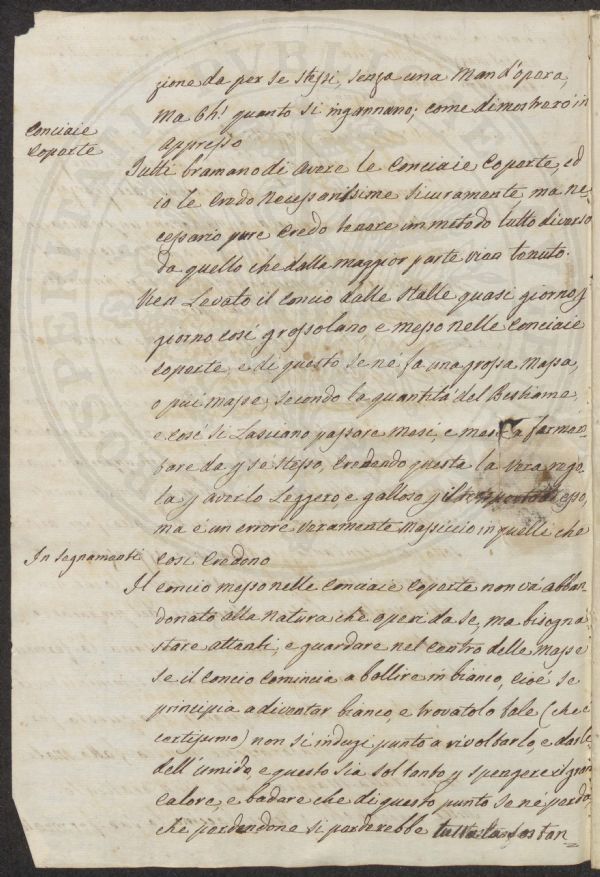 zione da per se stessi, senza una Man d'opera,
Ma Oh! quanto si ingannano; come dimostrerò in
appresso
Conciaie
Coperte
Tutti bramano di avere le Conciaie Coperte, ed
io le Credo Necessarissime sicuramente, ma ne=
cessario pure Credo tenere un metodo tutto diverso
da quello che dalla maggior parte vien tenuto.
Vien Levato il Concio dalle Stalle quasi giorno p
giorno così grossolano, e messo nelle Conciaie
Coperte, e di questo se nè fa una grossa Massa,
o più masse, secondo la quantità del Bestiame,
e così si Lasciano passare Mesi, e mesi a fermen=
tare da p sè stesso, Credendo questa la vera rego=
la p averlo Leggero, e galloso p il
ma è un errore veramente Massiccio in quelli che
così Credono
Insegnamenti
Il Concio messo nelle Conciaie Coperte non và abban=
donato alla Natura che operi da se, ma bisogna
stare attenti, e guardare nel Centro delle Masse
se il Concio Comincia a bollire in bianco, cioè se
principia a diventar bianco, e trovatolo tale (che è
certissimo) non si indugi punto a rivoltarlo, e darle
dell'umido, e questo sia soltanto p spengere il gran
Calore, e badare che di questo punto se nè perda,
che perdendone si perderebbe tutta la sostan=